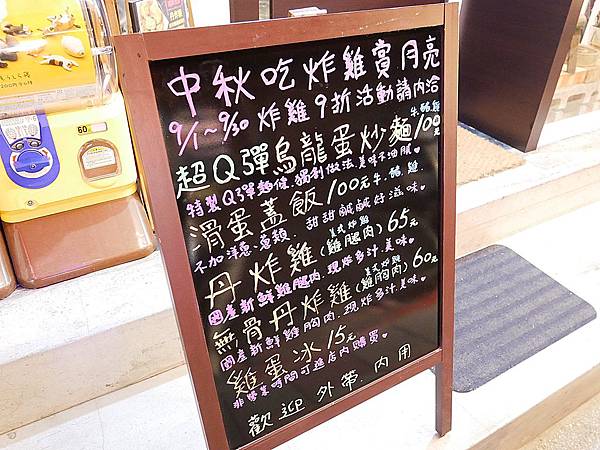 中秋吃炸雞賞月亮
9/1~9/30 炸雞9折活動請內洽
超Q彈烏龍蛋炒麵100元 牛.豬.雞
特製Q彈麵條.獨創做法.美味不油膩♥
滑蛋蓋飯100元 牛.豬.雞.
不加洋蔥.蔥類.甜甜鹹鹹好滋味♥
丹炸雞(美式炸雞 雞腿肉)65元
國產新鮮雞腿肉.現炸多汁.美味♥
無骨丹炸雞(美式炸雞 雞胸肉)60元
國產新鮮雞胸肉.現炸多汁.美味♥
雞蛋冰15元
非營業時間可進店內購買♥
歡迎外帶.內用
60